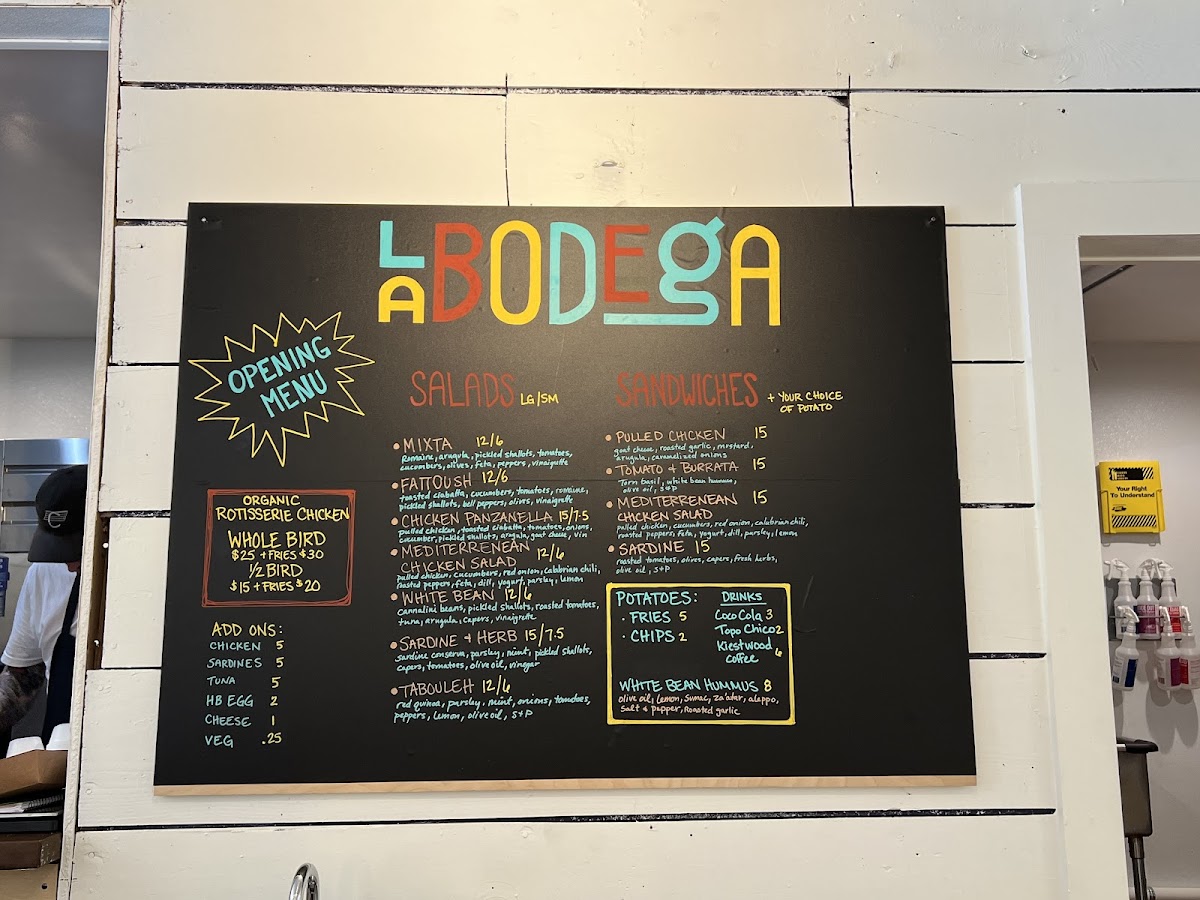 LA BODEGA
OPENING
MENU
ORGANIC
ROTISSERIE CHICKEN
WHOLE BIRD
$25 + FRIES $30
1/2 BIRD
$15 + FRIES $20
ADD ONS:
CHICKEN 5
SARDINES 5
TUNA 5
HB EGG 2
CHEESE 1
VEG .25
SALADS LG/SM
MIXTA 12/6
Romaine, arugula, pickled shallots, tomatoes,
cucumbers, olives, feta, peppers, vinaigrette
FATTOUSH 12/6
toasted ciabatta, cucumbers, tomatoes, romaine,
pickled shallots, bell peppers, olives, vinaigrette
CHICKEN PANZANELLA 15/7.5
pulled chicken, toasted ciabatta, tomatoes, onions,
cucumber, pickled shallots, arugula, goat cheese, vin
MEDITERRENEAN 12/6
CHICKEN SALAD
pulled chicken, cucumbers, red onion, calabrian chili,
roasted peppers, feta, dill, yogurt, parsley, lemon
WHITE BEAN 12/6
cannalini beans, pickled shallots, roasted tomatoes,
tuna, arugula, capers, vinaigrette
SARDINE & HERB 15/7.5
sardine conserva, parsley, mint, pickled shallots,
capers, tomatoes, olive oil, vinegar
TABOULEH 12/6
red quinoa, parsley, mint, onions, tomatoes,
peppers, lemon, olive oil, S+P
SANDWICHES + YOUR CHOICE
OF POTATO
PULLED CHICKEN 15
goat cheese, roasted garlic, mustard,
arugula, caramelized onions
TOMATO & BURRATA 15
Torn basil, white bean hummus,
olive oil, S+P
MEDITERRENEAN 15
CHICKEN SALAD
pulled chicken, cucumbers, red onion, calabrian chili,
roasted peppers, feta, yogurt, dill, parsley, lemon
SARDINE 15
roasted tomatoes, olives, capers, fresh herbs,
olive oil, S+P
POTATOES:
· FRIES 5
· CHIPS 2
DRINKS
Coco Cola 3
Topo Chico 2
Kiestwood
Coffee 6
WHITE BEAN HUMMUS 8
olive oil, lemon, sumac, za'atar, aleppo,
Salt & pepper, Roasted garlic
Your Right
To Understand